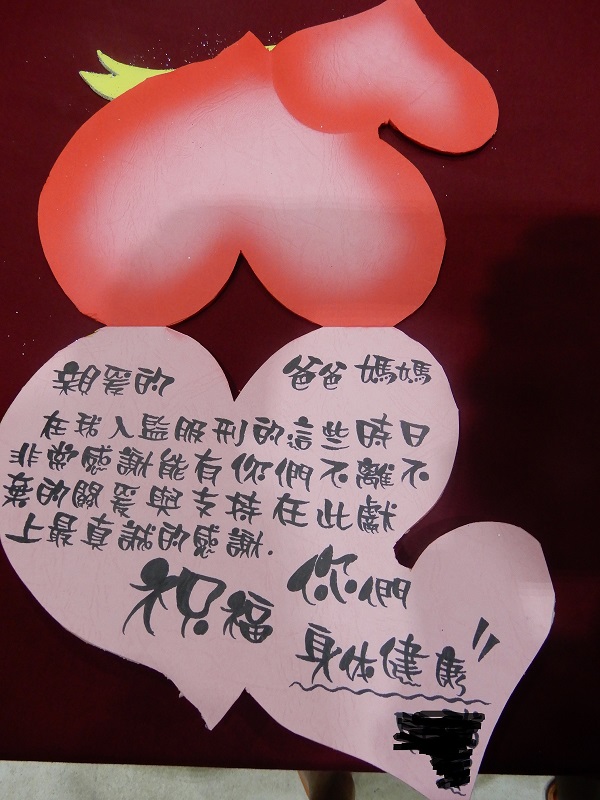 親愛的 爸爸媽媽
在我入監服刑的這些時日
非常感謝能有你們不離不
棄的關愛與支持在此獻
上最真誠的感謝.
祝福 你們
身体健康"